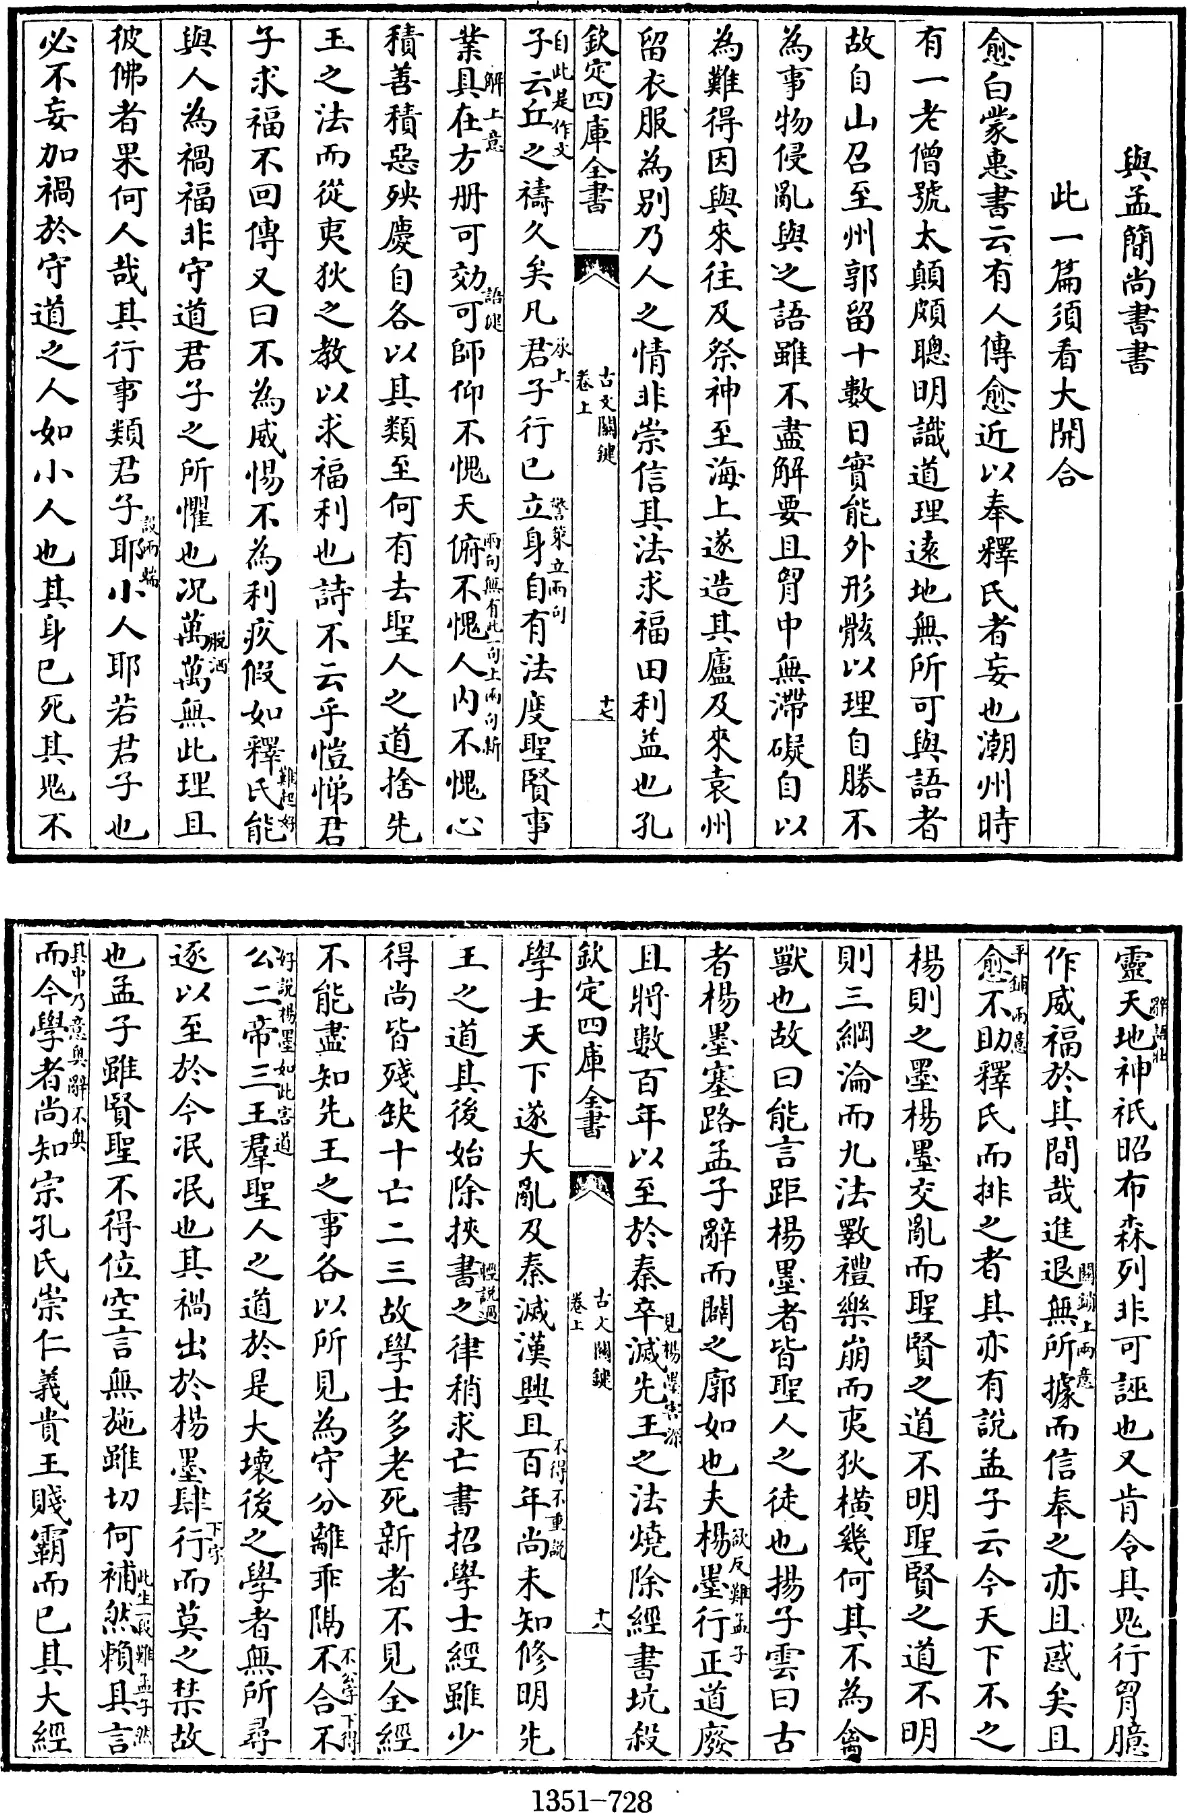 與孟簡尚書書
此一篇須看大開合
愈白蒙惠書云有人傳愈近以奉釋氏者妄也潮州時
有一老僧號太顛頗聰明識道理遠地無所可與語者
故自山召至州郭留十數日實能外形骸以理自勝不
為事物侵亂與之語雖不盡解要且胷中無滯礙自以
為難得因與來往及祭神至海上遂造其廬及來袁州
留衣服為別乃人之情非崇信其法求福田利益也孔
欽定四庫全書
古文關鍵
卷上
十七
自此是作文
子云丘之禱久矣凡君子行已立身自有法度聖賢事
承上
警策立兩句
解上意
業具在方册可效可師仰不愧天俯不愧人内不愧心
語健
兩句無有此一句上兩句斬
積善積惡殃慶自各以其類至何有去聖人之道捨先
王之法而從夷狄之教以求福利也詩不云乎愷悌君
子求福不回傳又曰不為威惕不為利疚假如釋氏能
難起好
與人為禍福非守道君子之所懼也况萬萬無此理且
脫洒
彼佛者果何人哉其行事類君子耶小人耶若君子也
設兩端
必不妄加禍於守道之人如小人也其身已死其鬼不
靈天地神祇昭布森列非可誣也又肯令其鬼行胷臆
辭語壯
作威福於其間哉進退無所據而信奉之亦且惑矣且
關鎖上兩意
平鋪兩意
愈不助釋氏而排之者其亦有說孟子云今天下不之
楊則之墨楊墨交亂而聖賢之道不明聖賢之道不明
則三綱淪而九法斁禮樂崩而夷狄橫幾何其不為禽
獸也故曰能言距楊墨者皆聖人之徒也揚子雲曰古
者楊墨塞路孟子辭而闢之廓如也夫楊墨行正道廢
欲反難孟子
且將數百年以至於秦卒滅先王之法燒除經書坑殺
見楊墨害深
欽定四庫全書
古文關鍵
卷上
十八
學士天下遂大亂及秦滅漢興且百年尚未知修明先
不得不重說
王之道其後始除挾書之律稍求亡書招學士經雖少
輕說過
得尚皆殘缺十亡二三故學士多老死新者不見全經
不能盡知先王之事各以所見為守分離乖隔不合不
不公字下得
好說楊墨如此害道
公二帝三王羣聖人之道於是大壞後之學者無所尋
逐以至於今泯泯也其禍出於楊墨肆行而莫之禁故
下字
也孟子雖賢聖不得位空言無施雖切何補然賴其言
此生一段難孟子然
其中乃意與辭不與
而今學者尚知宗孔氏崇仁義貴王賤霸而已其大經
1351-728